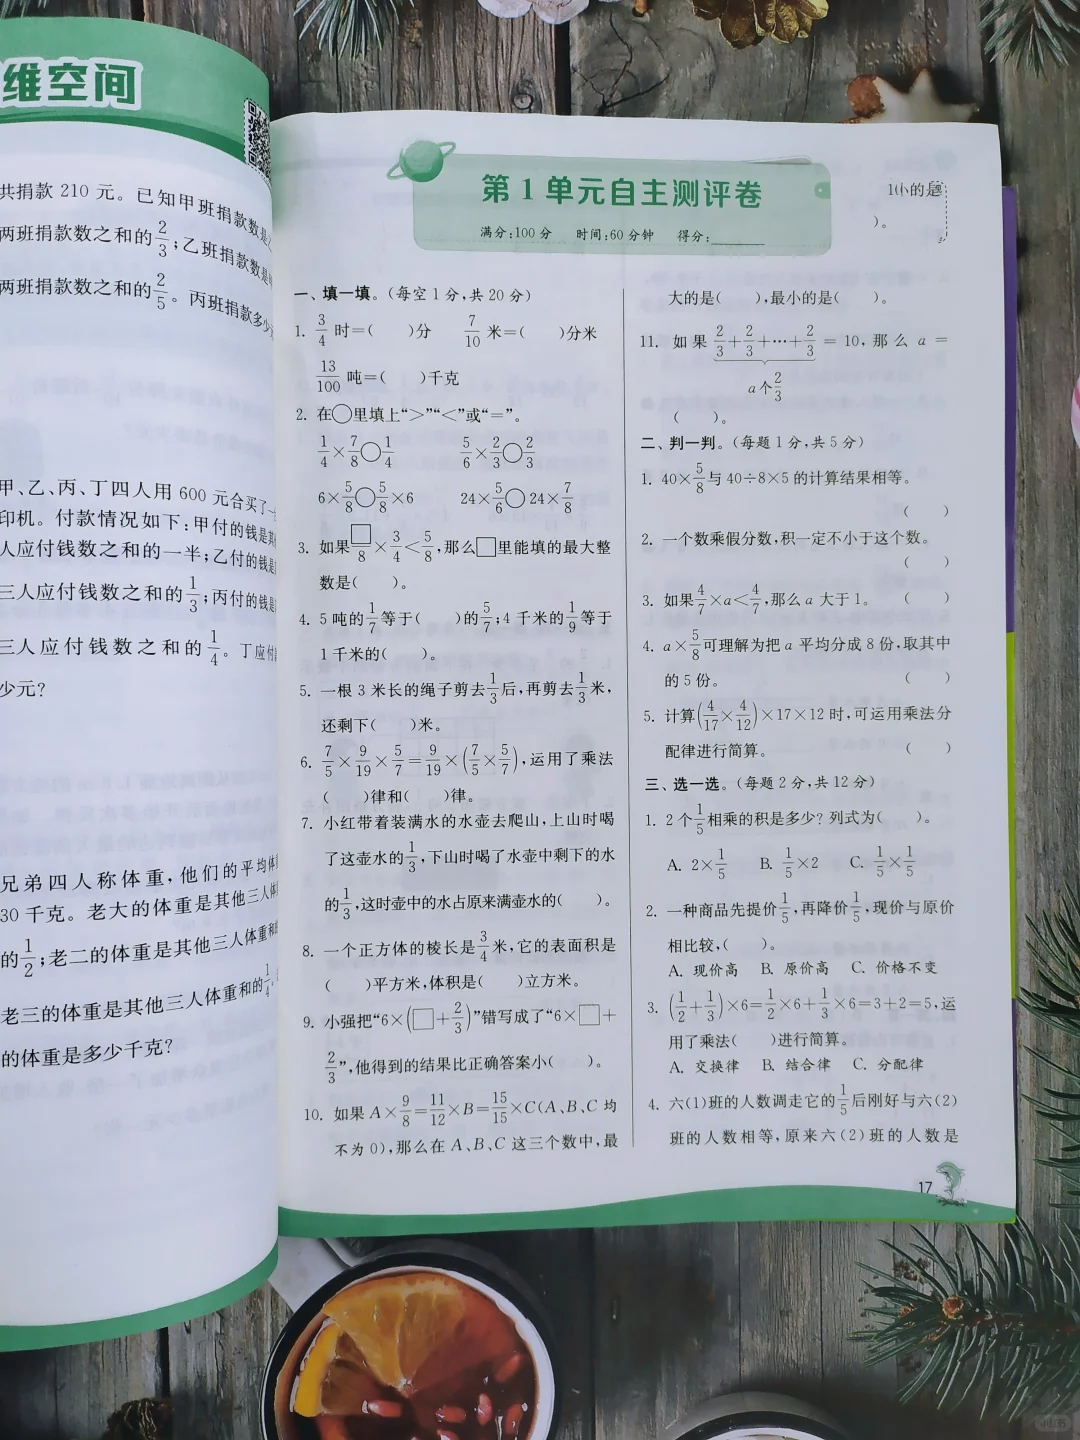 维空间
共捐款 210 元。已知甲班捐款数是
两班捐款数之和的2/3;乙班捐款数是
两班捐款数之和的2/5。丙班捐款多少
甲、乙、丙、丁四人用 600 元合买了一
印机。付款情况如下:甲付的钱是其
人应付钱数之和的一半;乙付的钱是
三人应付钱数之和的1/3;丙付的钱是
三人应付钱数之和的1/4。丁应付
少元?
兄弟四人称体重,他们的平均体
30 千克。老大的体重是其他三人体
的1/2;老二的体重是其他三人体重和
老三的体重是其他三人体重和的1/4
的体重是多少千克?
第 1 单元自主测评卷
满分:100 分 时间:60 分钟 得分:
一、填一填。(每空 1 分,共 20 分)
1. 3/4 时=( )分 7/10 米=( )分米
13/100 吨=( )千克
2. 在○里填上“>”“<”或“=”。
1/4×7/8○1/4 5/6×2/3○2/3
6×5/8○5/8×6 24×5/6○24×7/8
3. 如果□/8×3/4<5/8,那么□里能填的最大整
数是( )。
4. 5 吨的1/7等于( )的5/7;4 千米的1/9等于
1 千米的( )。
5. 一根 3 米长的绳子剪去1/3后,再剪去1/3米,
还剩下( )米。
6. 7/5×9/19×5/7=9/19×(7/5×5/7),运用了乘法
( )律和( )律。
7. 小红带着装满水的水壶去爬山,上山时喝
了这壶水的1/3,下山时喝了水壶中剩下的水
的1/3,这时壶中的水占原来满壶水的( )。
8. 一个正方体的棱长是3/4米,它的表面积是
( )平方米,体积是( )立方米。
9. 小强把“6×(□+2/3)”错写成了“6×□+
2/3”,他得到的结果比正确答案小( )。
10. 如果 A×9/8=11/12×B=15/15×C(A、B、C 均
不为 0),那么在 A、B、C 这三个数中,最
的题
)。
大的是( ),最小的是( )。
11. 如果 2/3+2/3+…+2/3=10,那么 a=
a个2/3
( )。
二、判一判。(每题 1 分,共 5 分)
1. 40×5/8与 40÷8×5 的计算结果相等。
( )
2. 一个数乘假分数,积一定不小于这个数。
( )
3. 如果4/7×a<4/7,那么 a 大于 1。 ( )
4. a×5/8可理解为把 a 平均分成 8 份,取其中
的 5 份。 ( )
5. 计算(4/17×4/12)×17×12 时,可运用乘法分
配律进行简算。 ( )
三、选一选。(每题 2 分,共 12 分)
1. 2 个1/5相乘的积是多少? 列式为( )。
A. 2×1/5 B. 1/5×2 C. 1/5×1/5
2. 一种商品先提价1/5,再降价1/5,现价与原价
相比较,( )。
A. 现价高 B. 原价高 C. 价格不变
3. (1/2+1/3)×6=1/2×6+1/3×6=3+2=5,运
用了乘法( )进行简算。
A. 交换律 B. 结合律 C. 分配律
4. 六(1)班的人数调走它的1/5后刚好与六(2)
班的人数相等,原来六(2)班的人数是
17